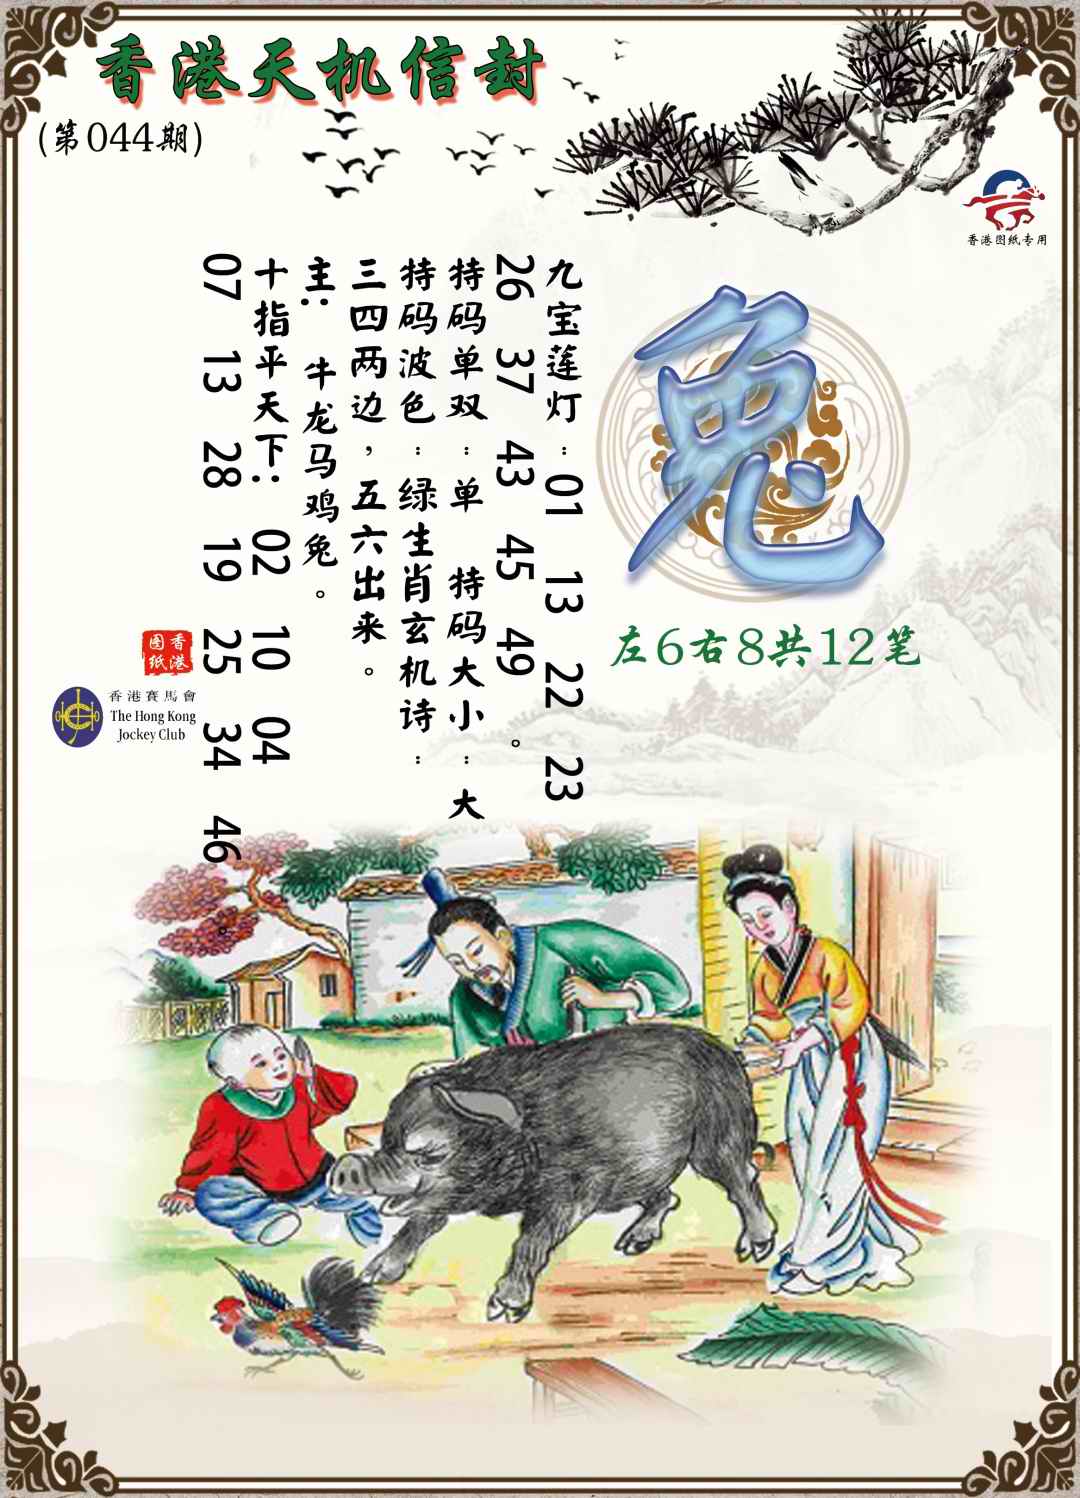 香港天机信封
(第044期)
香港图纸专用
兔
左6右8共12笔
九宝莲灯：01 13 22 23
26 37 43 45 49。
特码单双：单 特码大小：大
特码波色：绿生肖玄机诗：
三四两边，五六出来。
主：牛龙马鸡兔。
十指平天下：02 10 04
07 13 28 19 25 34 46。
香港图纸
香港賽馬會
The Hong Kong
Jockey Club